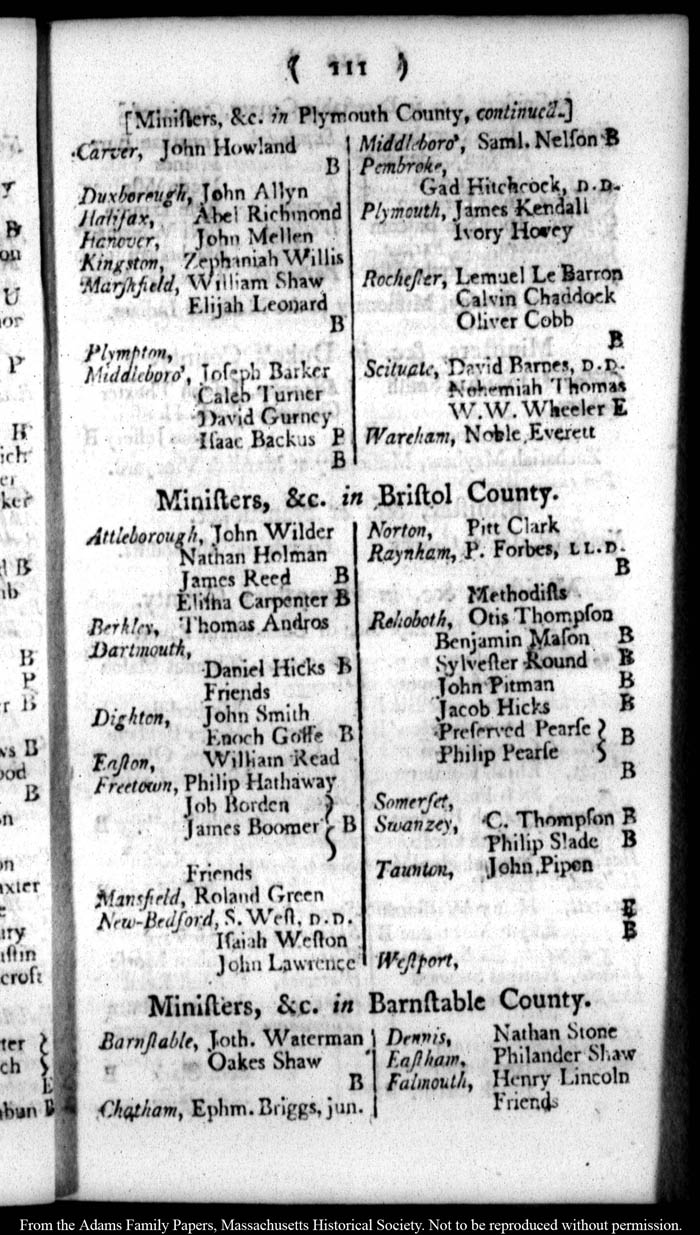 ( 111 )
[Miniſters, &c. in Plymouth County, continued.]
Carver, John Howland
B
Duxborough, John Allyn
Halifax, Abel Richmond
Hanover, John Mellen
Kingston, Zephaniah Willis
Marſhfield, William Shaw
Elijah Leonard
B
Plympton,
Middleboro', Joſeph Barker
Caleb Turner
David Gurney
Iſaac Backus P
B
Middleboro', Saml. Nelſon B
Pembroke,
Gad Hitchcock, D.D.
Plymouth, James Kendall
Ivory Hovey
Rocheſter, Lemuel Le Barron
Calvin Chaddock
Oliver Cobb
B
Scituate, David Barnes, D.D.
Nehemiah Thomas
W. W. Wheeler E
Wareham, Noble Everett
Miniſters, &c. in Briſtol County.
Attleborough, John Wilder
Nathan Holman
James Reed B
Eliſha Carpenter B
Berkley, Thomas Andros
Dartmouth,
Daniel Hicks B
Friends
Dighton, John Smith
Enoch Goffe B
Eaſton, William Read
Freetown, Philip Hathaway
Job Borden }
James Boomer } B
Friends
Mansfield, Roland Green
New-Bedford, S. Weſt, D.D.
Iſaiah Weſton
John Lawrence
Norton, Pitt Clark
Raynham, P. Forbes, LL.D.
B
Methodiſts
Rehoboth, Otis Thompſon
Benjamin Maſon B
Sylveſter Round B
John Pitman B
Jacob Hicks B
Preſerved Pearſe }
Philip Pearſe } B
B
Somerſet,
Swanzey, C. Thompſon B
Philip Slade B
Taunton, John Pipon
E
B
Weſtport,
Miniſters, &c. in Barnſtable County.
Barnſtable, Joth. Waterman
Oakes Shaw
B
Chatham, Ephm. Briggs, jun.
Dennis, Nathan Stone
Eaſtham, Philander Shaw
Falmouth, Henry Lincoln
Friends
From the Adams Family Papers, Massachusetts Historical Society. Not to be reproduced without permission.